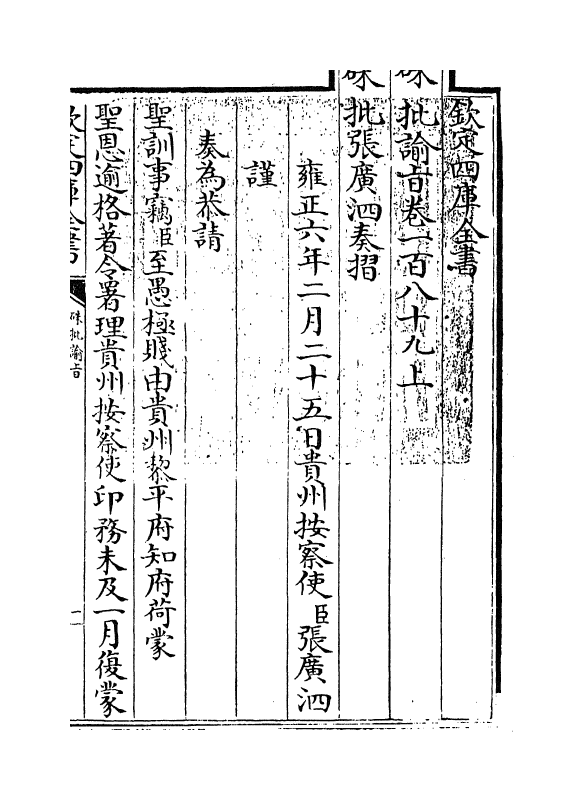 欽定四庫全書
硃批諭旨卷一百八十九上
硃批張廣泗奏摺
雍正六年二月二十五日貴州按察使臣張廣泗
謹
奏為恭請
聖訓事竊臣至愚極賤由貴州黎平府知府荷蒙
聖恩逾格著令署理貴州按察使印務未及一月復蒙
欽定四庫全書
硃批諭旨
一